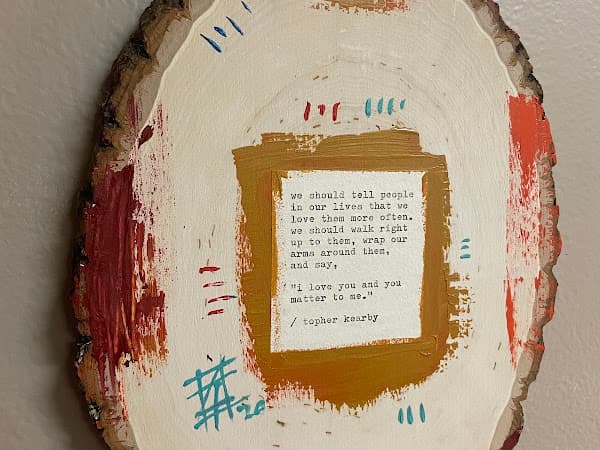 we should tell people
in our lives that we
love them more often.
we should walk right
up to them, wrap our
arms around them,
and say,
"i love you and you
matter to me."
/ topher kearby
'20